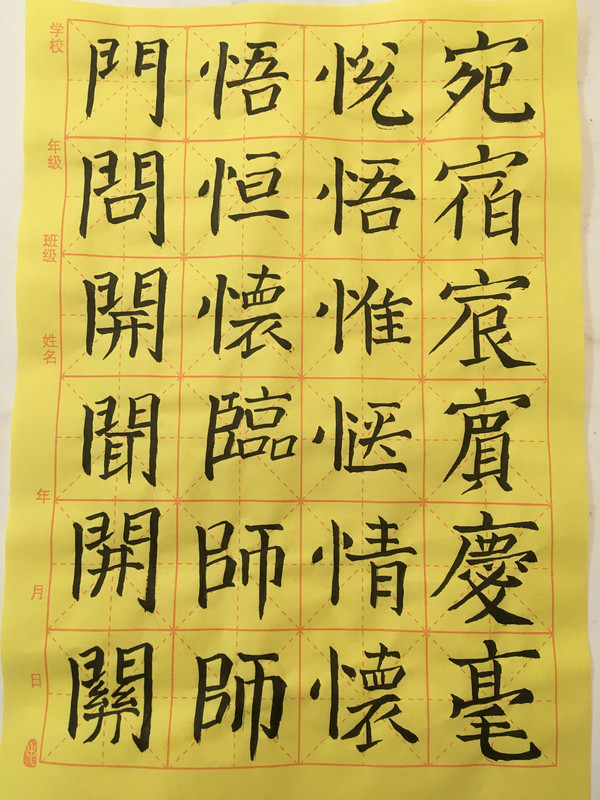 宛宿宸賔慶毫
悦悟惟愜情懐
悟恒懐臨師師
門問開聞開關
学校 年级 班级 姓名 年 月 日